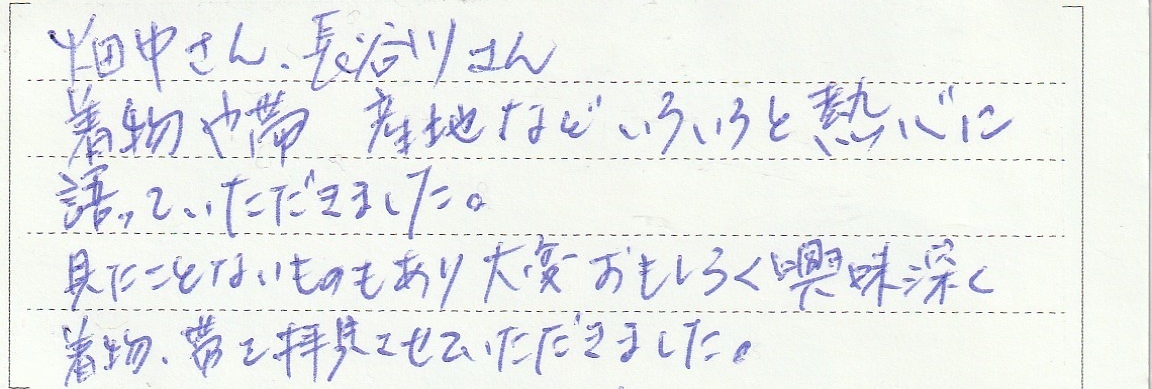 畑中さん、長谷川さん
着物や帯 産地などいろいろと熱心に
語っていただきました。
見たことないものもあり大変おもしろく興味深く
着物、帯を拝見させていただきました。